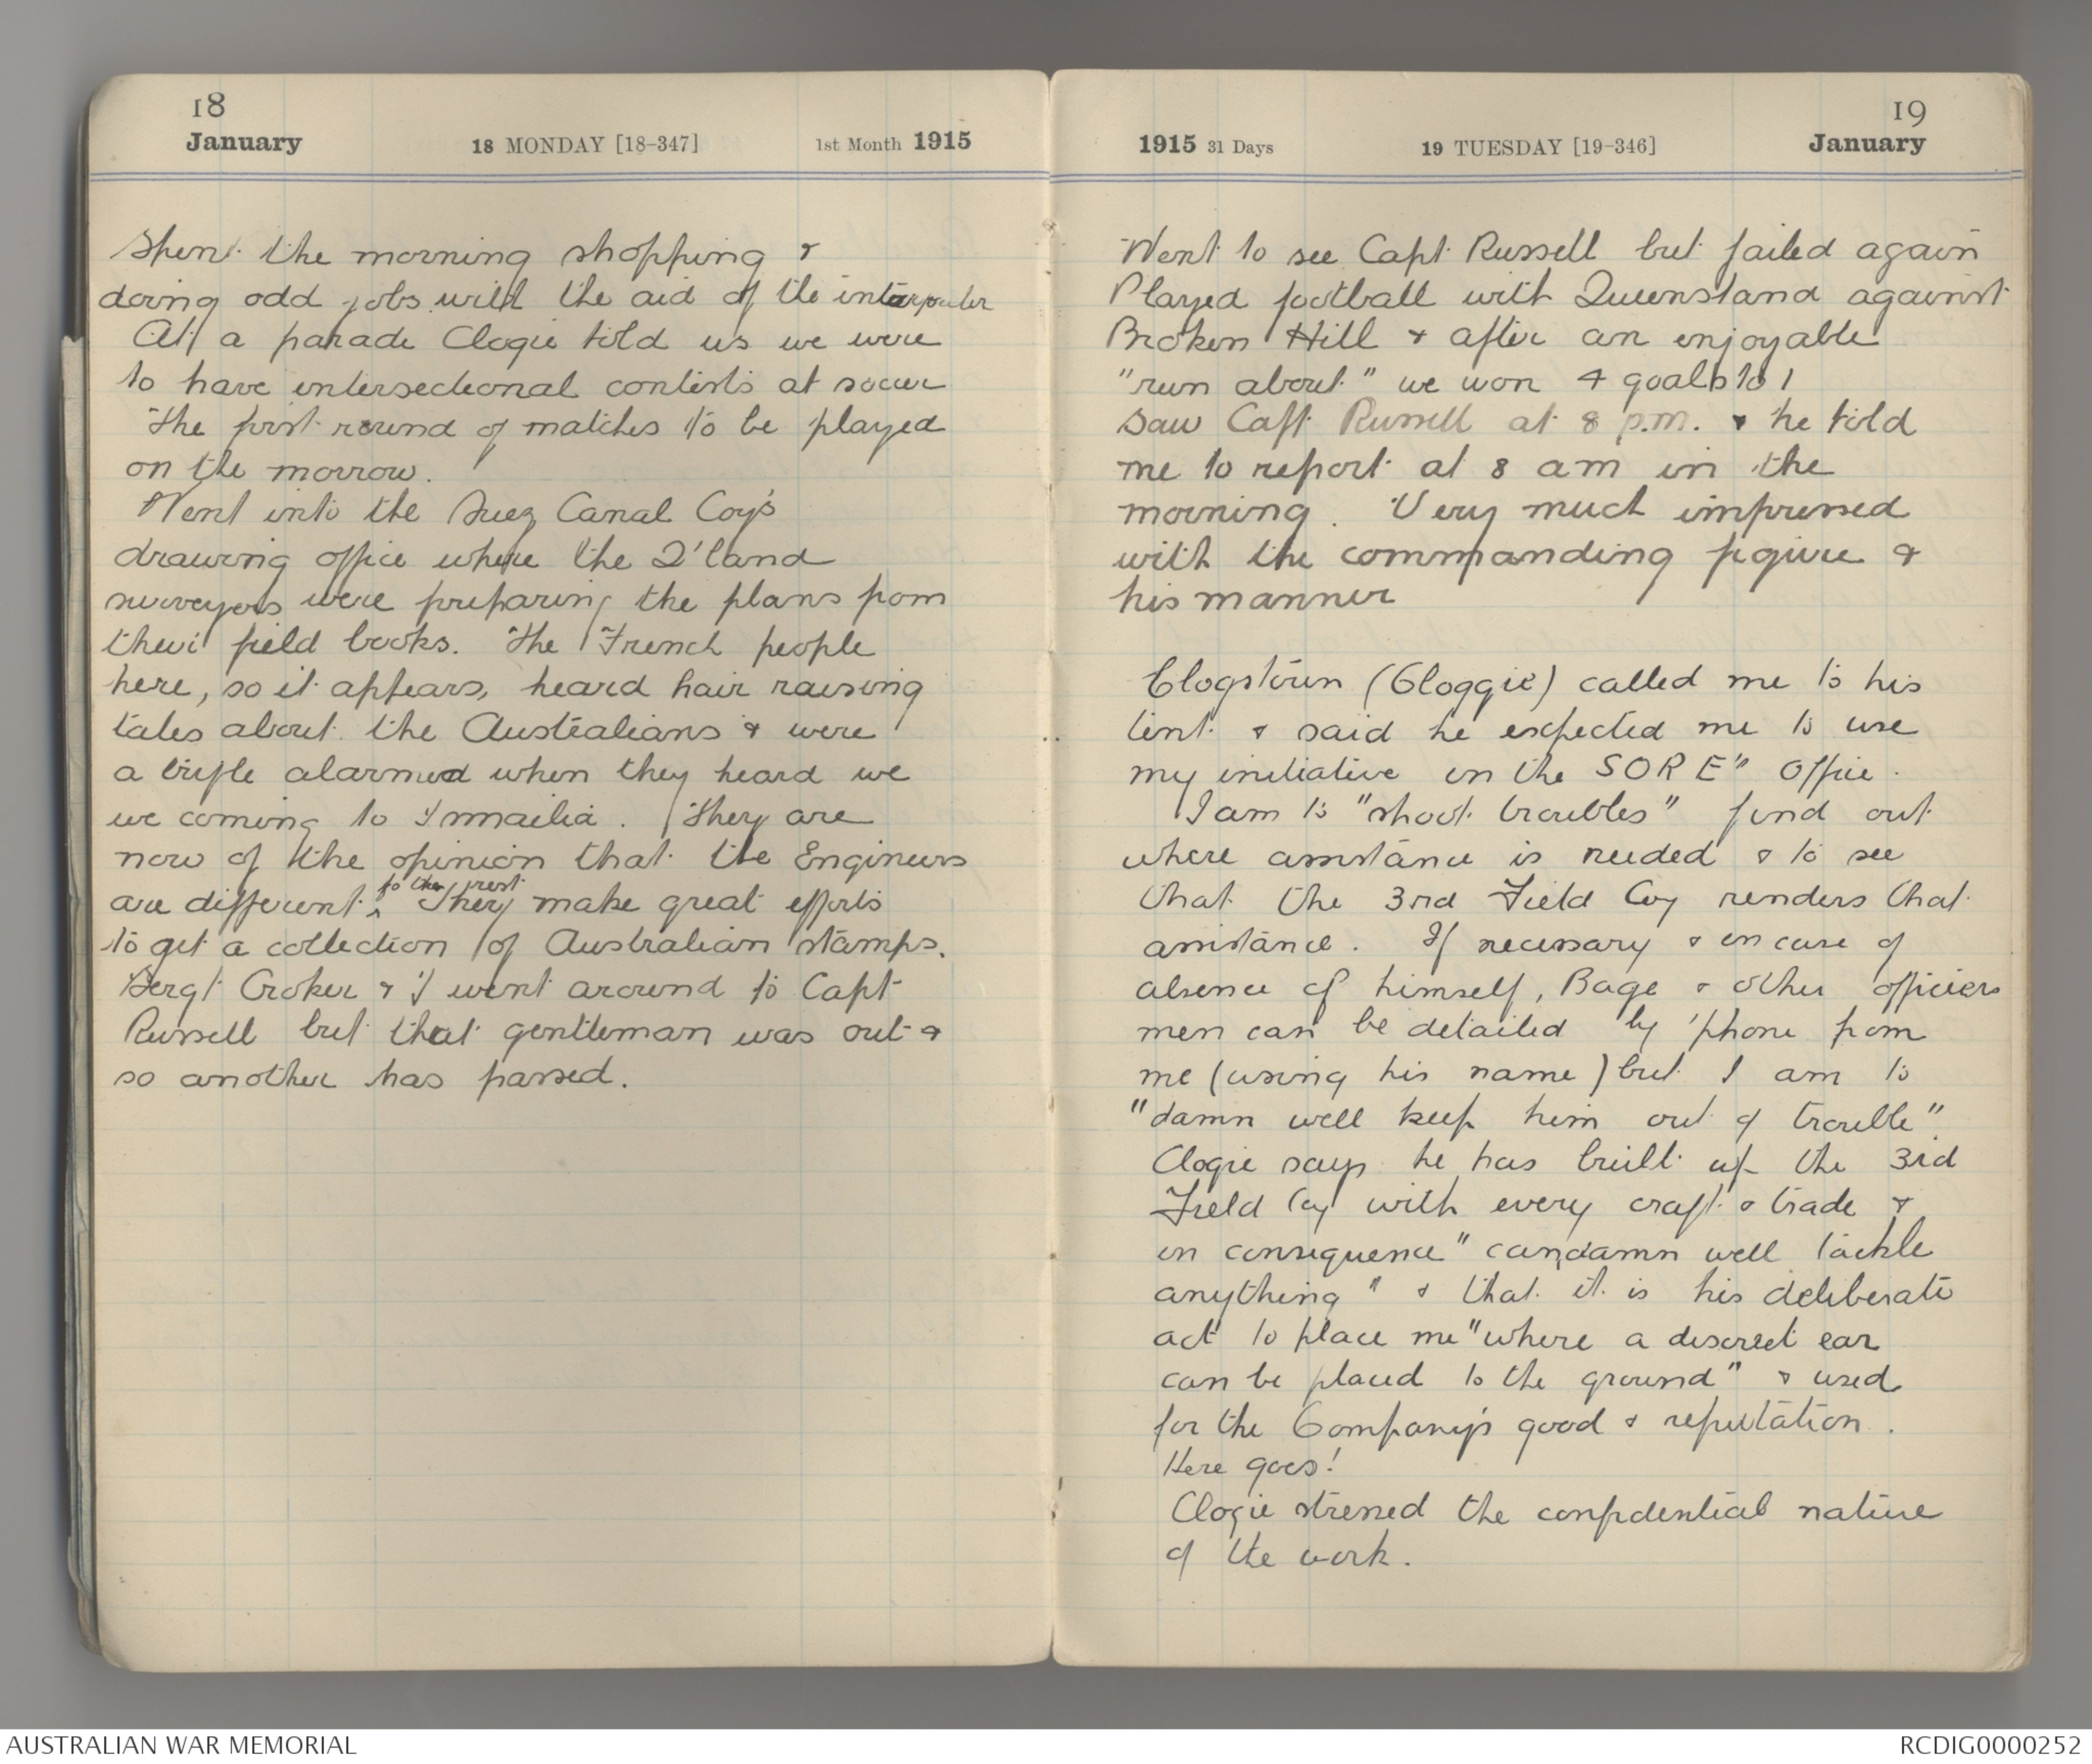 18
January 18 MONDAY [18-347] 1st Month 1915
Spent the morning shopping &
doing odd jobs with the aid of the interpreter
At a parade Clogie told us we were
to have intersectional contests at soccer
The first round of matches to be played
on the morrow.
Went into the Suez Canal Coy's
drawing office where the Q'land
surveyors were preparing the plans from
their field books. The French people
here, so it appears, heard hair raising
tales about the Australians & were
a trifle alarmed when they heard we
we coming to Ismailia. They are
now of the opinion that the Engineers
are different to the rest. They make great efforts
to get a collection of Australian stamps.
Sergt Croker & I went around to Capt
Russell but that gentleman was out &
so another has passed.
19
1915 31 Days 19 TUESDAY [19-346] January
Went to see Capt Russell but failed again
Played football with Queensland against
Broken Hill & after an enjoyable
"run about" we won 4 goals to 1
Saw Capt Russell at 8 p.m. & he told
me to report at 8 am in the
morning. Very much impressed
with the commanding figure &
his manner
Clogstoun (Cloggie) called me to his
tent & said he expected me to use
my initiative in the SORE" Office.
I am to "shoot troubles" find out
where assistance is needed & to see
that the 3rd Field Coy renders that
assistance. If necessary & in case of
absence of himself, Bage & other officers
men can be detailed by 'phone from
me (using his name) but I am to
"damn well keep him out of trouble".
Clogie says he has built up the 3rd
Field Coy with every craft & trade &
in consequence "can damn well tackle
anything" & that it is his deliberate
act to place me "where a discreet ear
can be placed to the ground" & used
for the Company's good & reputation.
Here goes!
Clogie stressed the confidential nature
of the work.
AUSTRALIAN WAR MEMORIAL RCDIG0000252